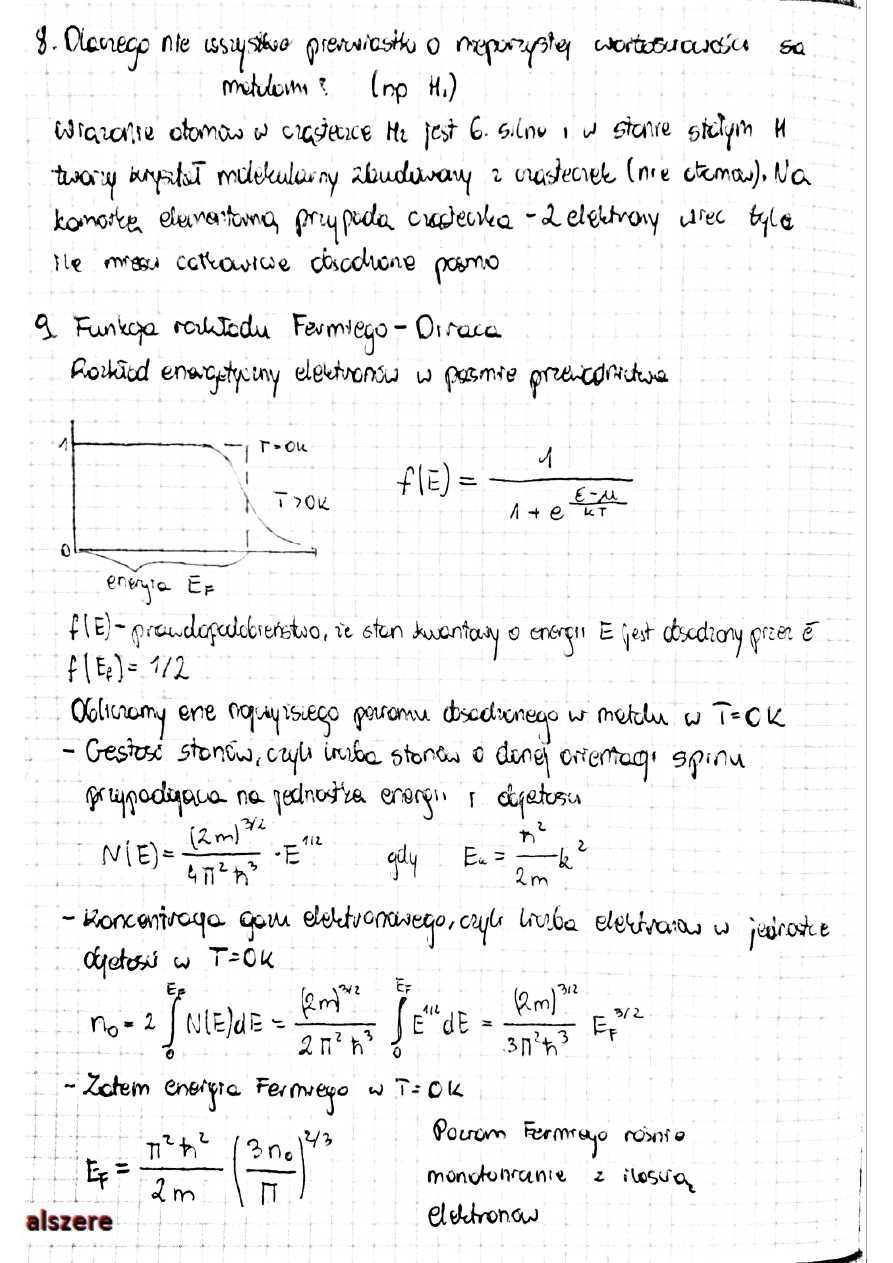 8. Dlaczego nie wszystkie pierwiastki o nieparzystej wartościowości są
metalami? (np H₂)
Wiązanie atomów w cząsteczce H₂ jest b. silne i w stanie stałym H
tworzy kryształ molekularny zbudowany z cząsteczek (nie atomów). Na
komórkę elementarną przypada cząsteczka - 2 elektrony więc tyle
ile mieści całkowicie obsadzone pasmo
9. Funkcja rozkładu Fermiego - Diraca
Rozkład energetyczny elektronów w pasmie przewodnictwa
1
T=0K
T>0K
0
energia E_F
f(E) = 1 / (1 + e^((E-μ)/kT))
f(E) - prawdopodobieństwo, że stan kwantowy o energii E jest obsadzony przez ē
f(E_F) = 1/2
Obliczamy ene najwyższego poziomu obsadzonego w metalu w T=0K
- Gęstość stanów, czyli liczba stanów o danej orientacji spinu
przypadająca na jednostkę energii i objętości
N(E) = (2m)^(3/2) / (4π²ħ³) · E^(1/2) gdy E_k = ħ²/2m k²
- Koncentracja gazu elektronowego, czyli liczba elektronów w jednostce
objętości w T=0K
n₀ = 2 ∫₀^(E_F) N(E)dE = (2m)^(3/2) / (2π²ħ³) ∫₀^(E_F) E^(1/2) dE = (2m)^(3/2) / (3π²ħ³) E_F^(3/2)
- Zatem energia Fermiego w T=0K
E_F = π²ħ² / 2m (3n₀ / π)^(2/3)
Poziom Fermiego rośnie
monotonicznie z ilością
elektronów
alszere